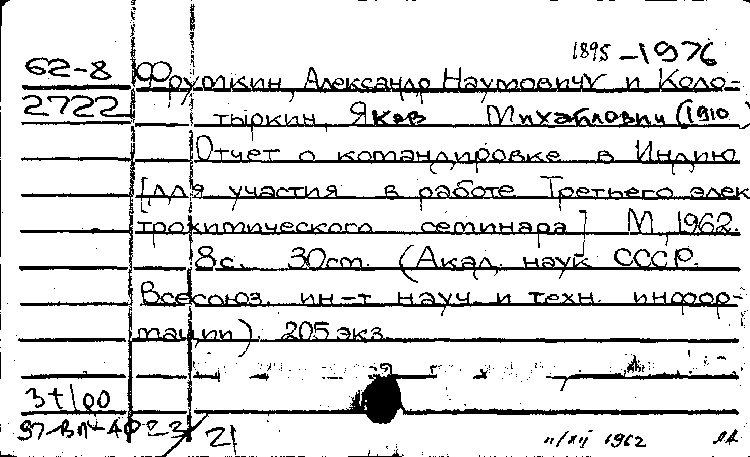 1895-1976
62-8 Фрумкин, Александр Наумович и Коло-
2722 тыркин, Яков Михайлович (1910
Отчет о командировке в Индию
[для участия в работе Третьего элек
трохимического семинара] М, 1962.
8 с. 30 см. (Акад. наук СССР.
Всесоюз. ин-т науч. и техн. инфор-
мации). 205 экз.
31/00
21
11/XII 1962